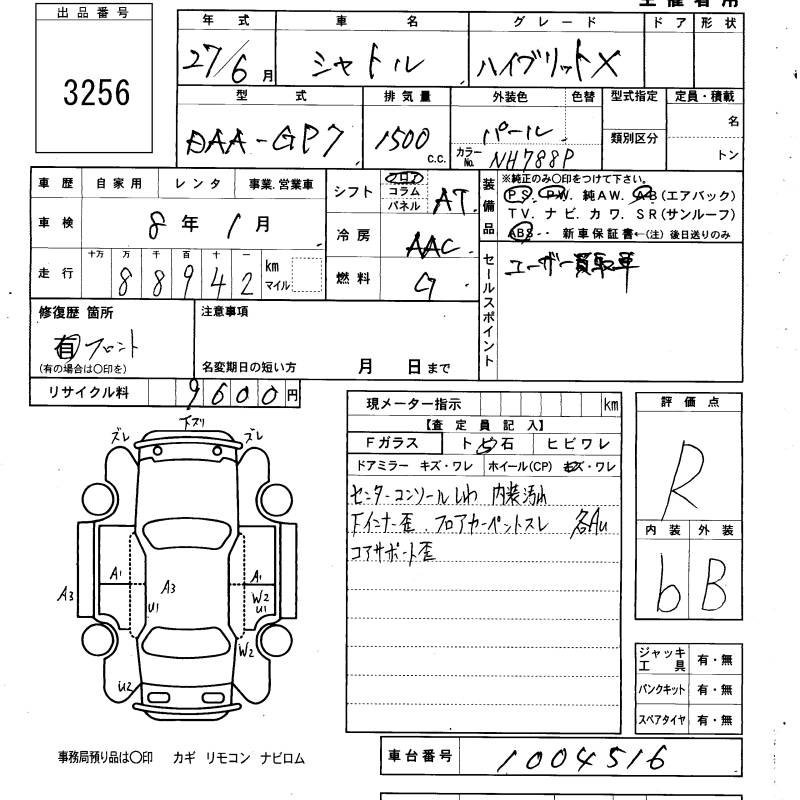 出品番号
3256
年式 車名 グレード ドア 形状
27/6月 シャトル ハイブリットX
型式 排気量 外装色 色替 型式指定 定員・積載
DAA-GP7 1500 c.c. パール 類別区分 名
カラーNo. NH788P トン
車歴 自家用 レンタ 事業.営業車
車検 8年1月
走行 十万 万 千 百 十 一
88942 km マイル
シフト フロア コラム パネル AT
冷房 AAC
燃料 G
装備品 ※純正のみ○印をつけて下さい。
PS. PW. 純AW. AB(エアバック)
TV. ナビ. カワ. SR(サンルーフ)
ABS・・ 新車保証書←(注) 後日送りのみ
セールスポイント
ユーザー買取車
修復歴 箇所
有 フロント
(有の場合は○印を)
注意事項
名変期日の短い方 月 日まで
リサイクル料 9600円
現メーター指示 km
【査定員記入】
Fガラス トビ石 ヒビワレ
ドアミラー キズ・ワレ ホイール(CP) キズ・ワレ
センターコンソールしわ 内装汚れ
Fインナー歪. フロアカーペットスレ 各AU
コアサポート歪
評価点
R
内装 外装
b B
下ズリ
ズレ ズレ
A1 A3 A1
A3 U1 W2 U1
W2
U2
ジャッキ工具 有・無
パンクキット 有・無
スペアタイヤ 有・無
事務局預り品は○印 カギ リモコン ナビロム
車台番号 1004516